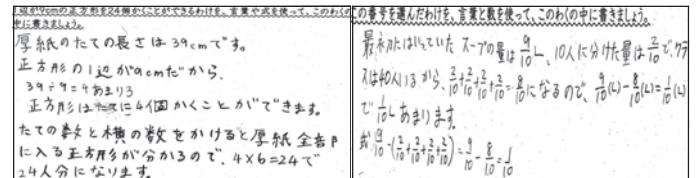 1辺が9cmの正方形を24個かくことができるわけを、言葉や式を使って、このわくの
中に書きましょう。
厚紙のたての長さは39cmです。
正方形の1辺が9cmだから、
39÷9=4あまり3
正方形はたてに4個かくことができます。
たての数と横の数をかけると厚紙全部
に入る正方形が分かるので、4×6=24で
24人分になります。
この番号を選んだわけを、言葉と数を使って、このわくの中に書きましょう。
最初にはいっていたスープの量は9/10L、10人に分けた量は2/10で、クラ
スは40人いるから、2/10+2/10+2/10+2/10=8/10になるので、9/10(L)-8/10(L)=1/10(L)
で1/10Lあまります。
式 9/10-(2/10+2/10+2/10+2/10)=9/10-8/10=1/10